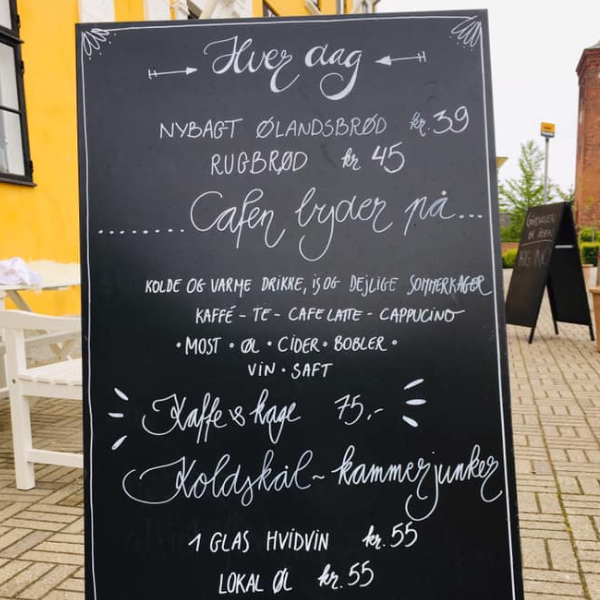 Hver dag
NYBAGT ØLANDSBRØD kr. 39
RUGBRØD kr 45
........Cafen byder på...
KOLDE OG VARME DRIKKE, is OG DEJLIGE SOMMERKAGER
KAFFÉ - TE - CAFE LATTE - CAPPUCINO
• MOST • ØL • CIDER • BOBLER •
VIN • SAFT
Kaffe & kage 75,-
Koldskål ~ kammerjunker
1 GLAS HVIDVIN kr. 55
LOKAL ØL kr. 55